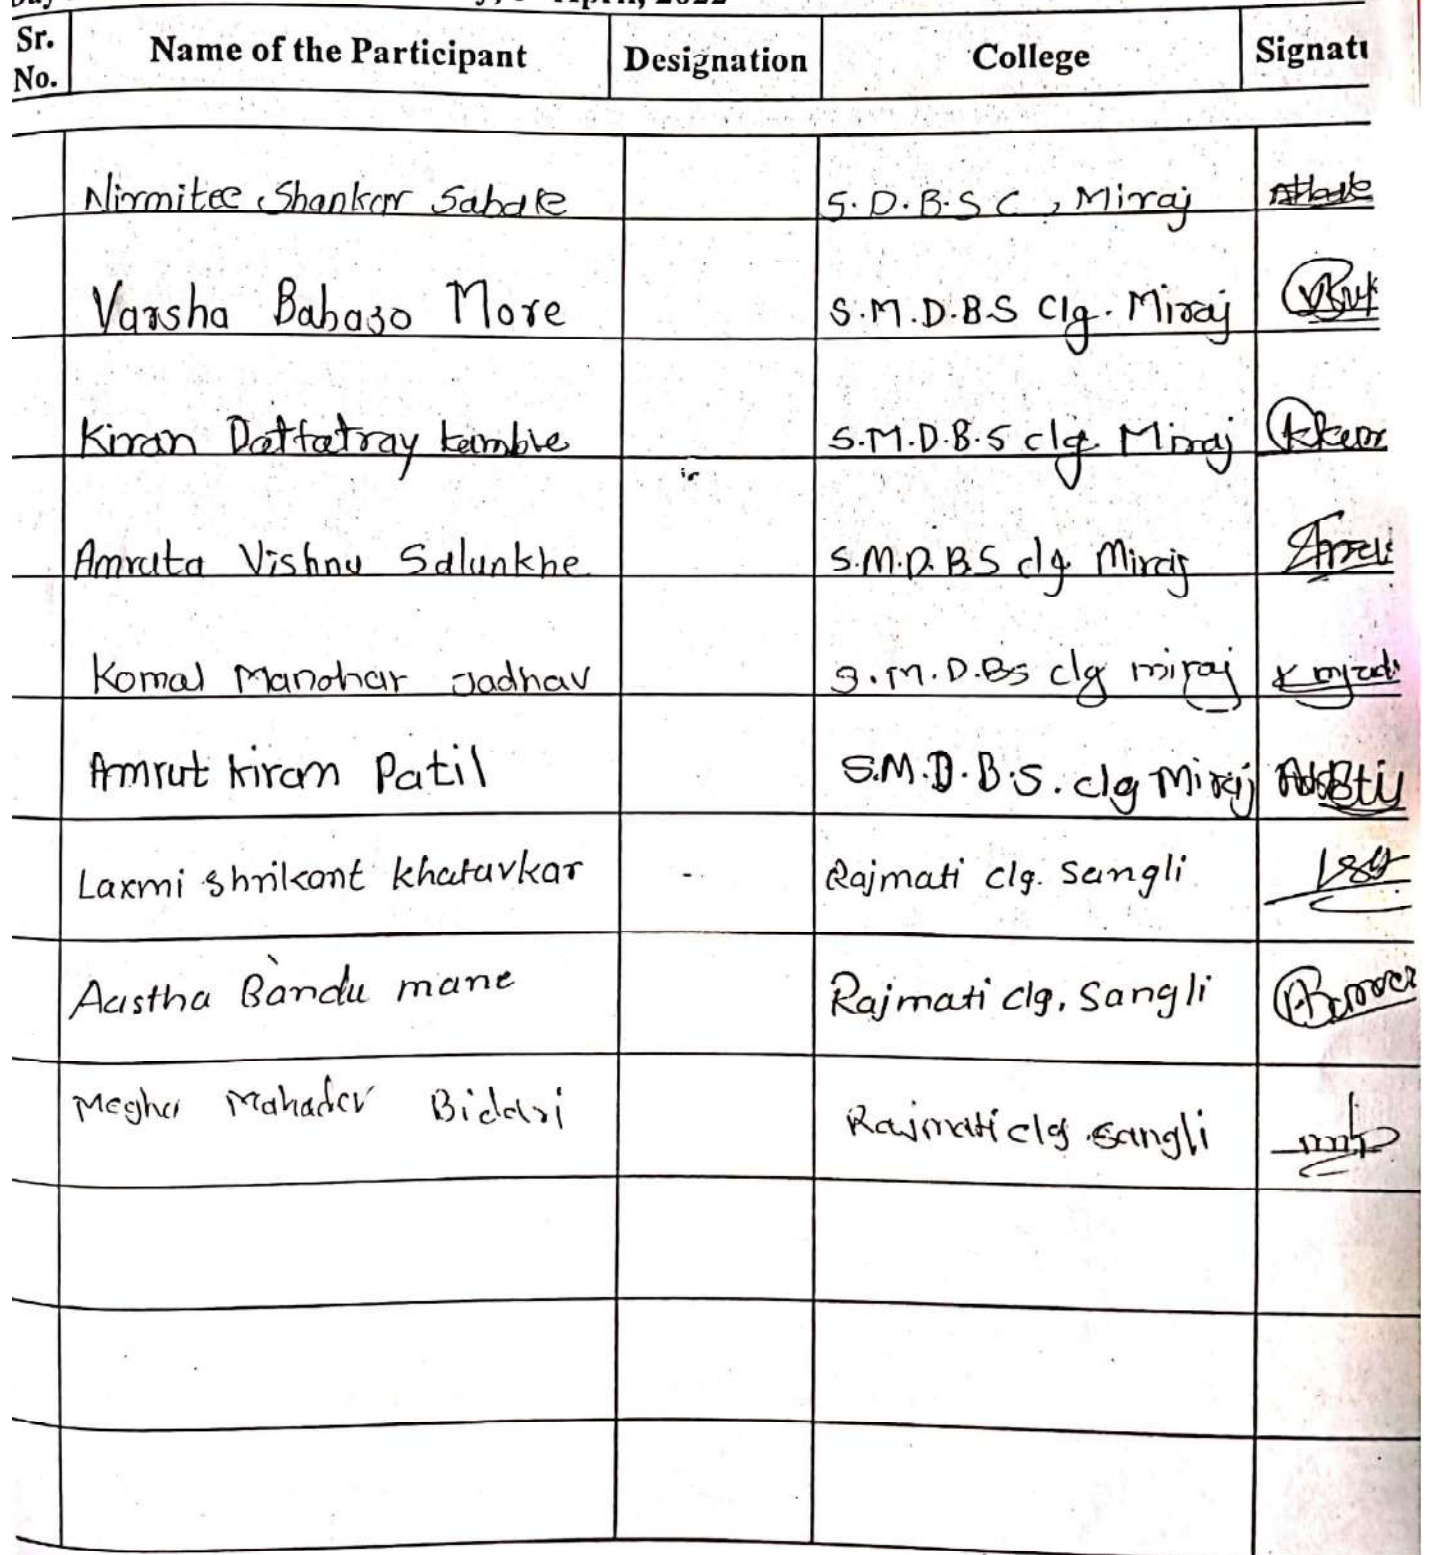 April, 2022
Sr. No. Name of the Participant Designation College Signatu
Nirmitee Shankar Sabale S.D.B.S C, Miraj
Varsha Babaso More S.M.D.B.S Clg. Miraj
Kiran Dattatray kamble S.M.D.B.S clg. Miraj
Amruta Vishnu Salunkhe S.M.D.B.S clg Miraj
Komal Manohar Jadhav S.M.D.Bs clg miraj
Amrut kiran Patil S.M.D.B.S. clg Miraj
Laxmi Shrikant khatavkar - Rajmati clg. Sangli
Aastha Bandu mane Rajmati clg. Sangli
Megha Mahadev Bidari Rajmati clg sangli